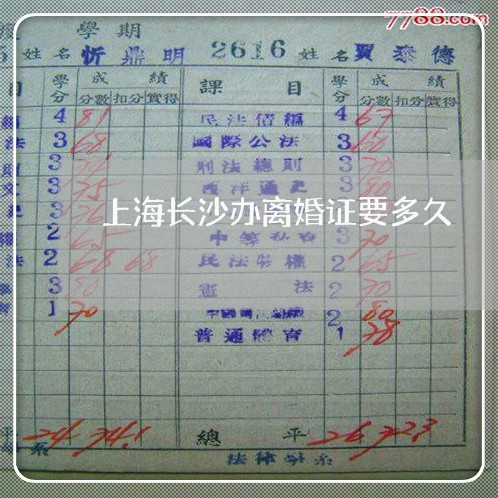 7788.com
學期
姓名忻鼎明 2616 姓名賈泰德
目 學分 成績 課目 學分 成績
分數 扣分 實得 分數 扣分 實得
4 81 民法債編 4 67
法 3 68 國際公法 3 60
3 刑法總則 3 70
3 75 西洋通史 3 80
3
上海长沙办离婚证要多久
2 65 3 70
法 2 68 68 民法物權 2 65
3 80 憲法 2 70
1 70 2 80
普通體育 1 78
24 74.1 總平 26 72.3
系 法律學系